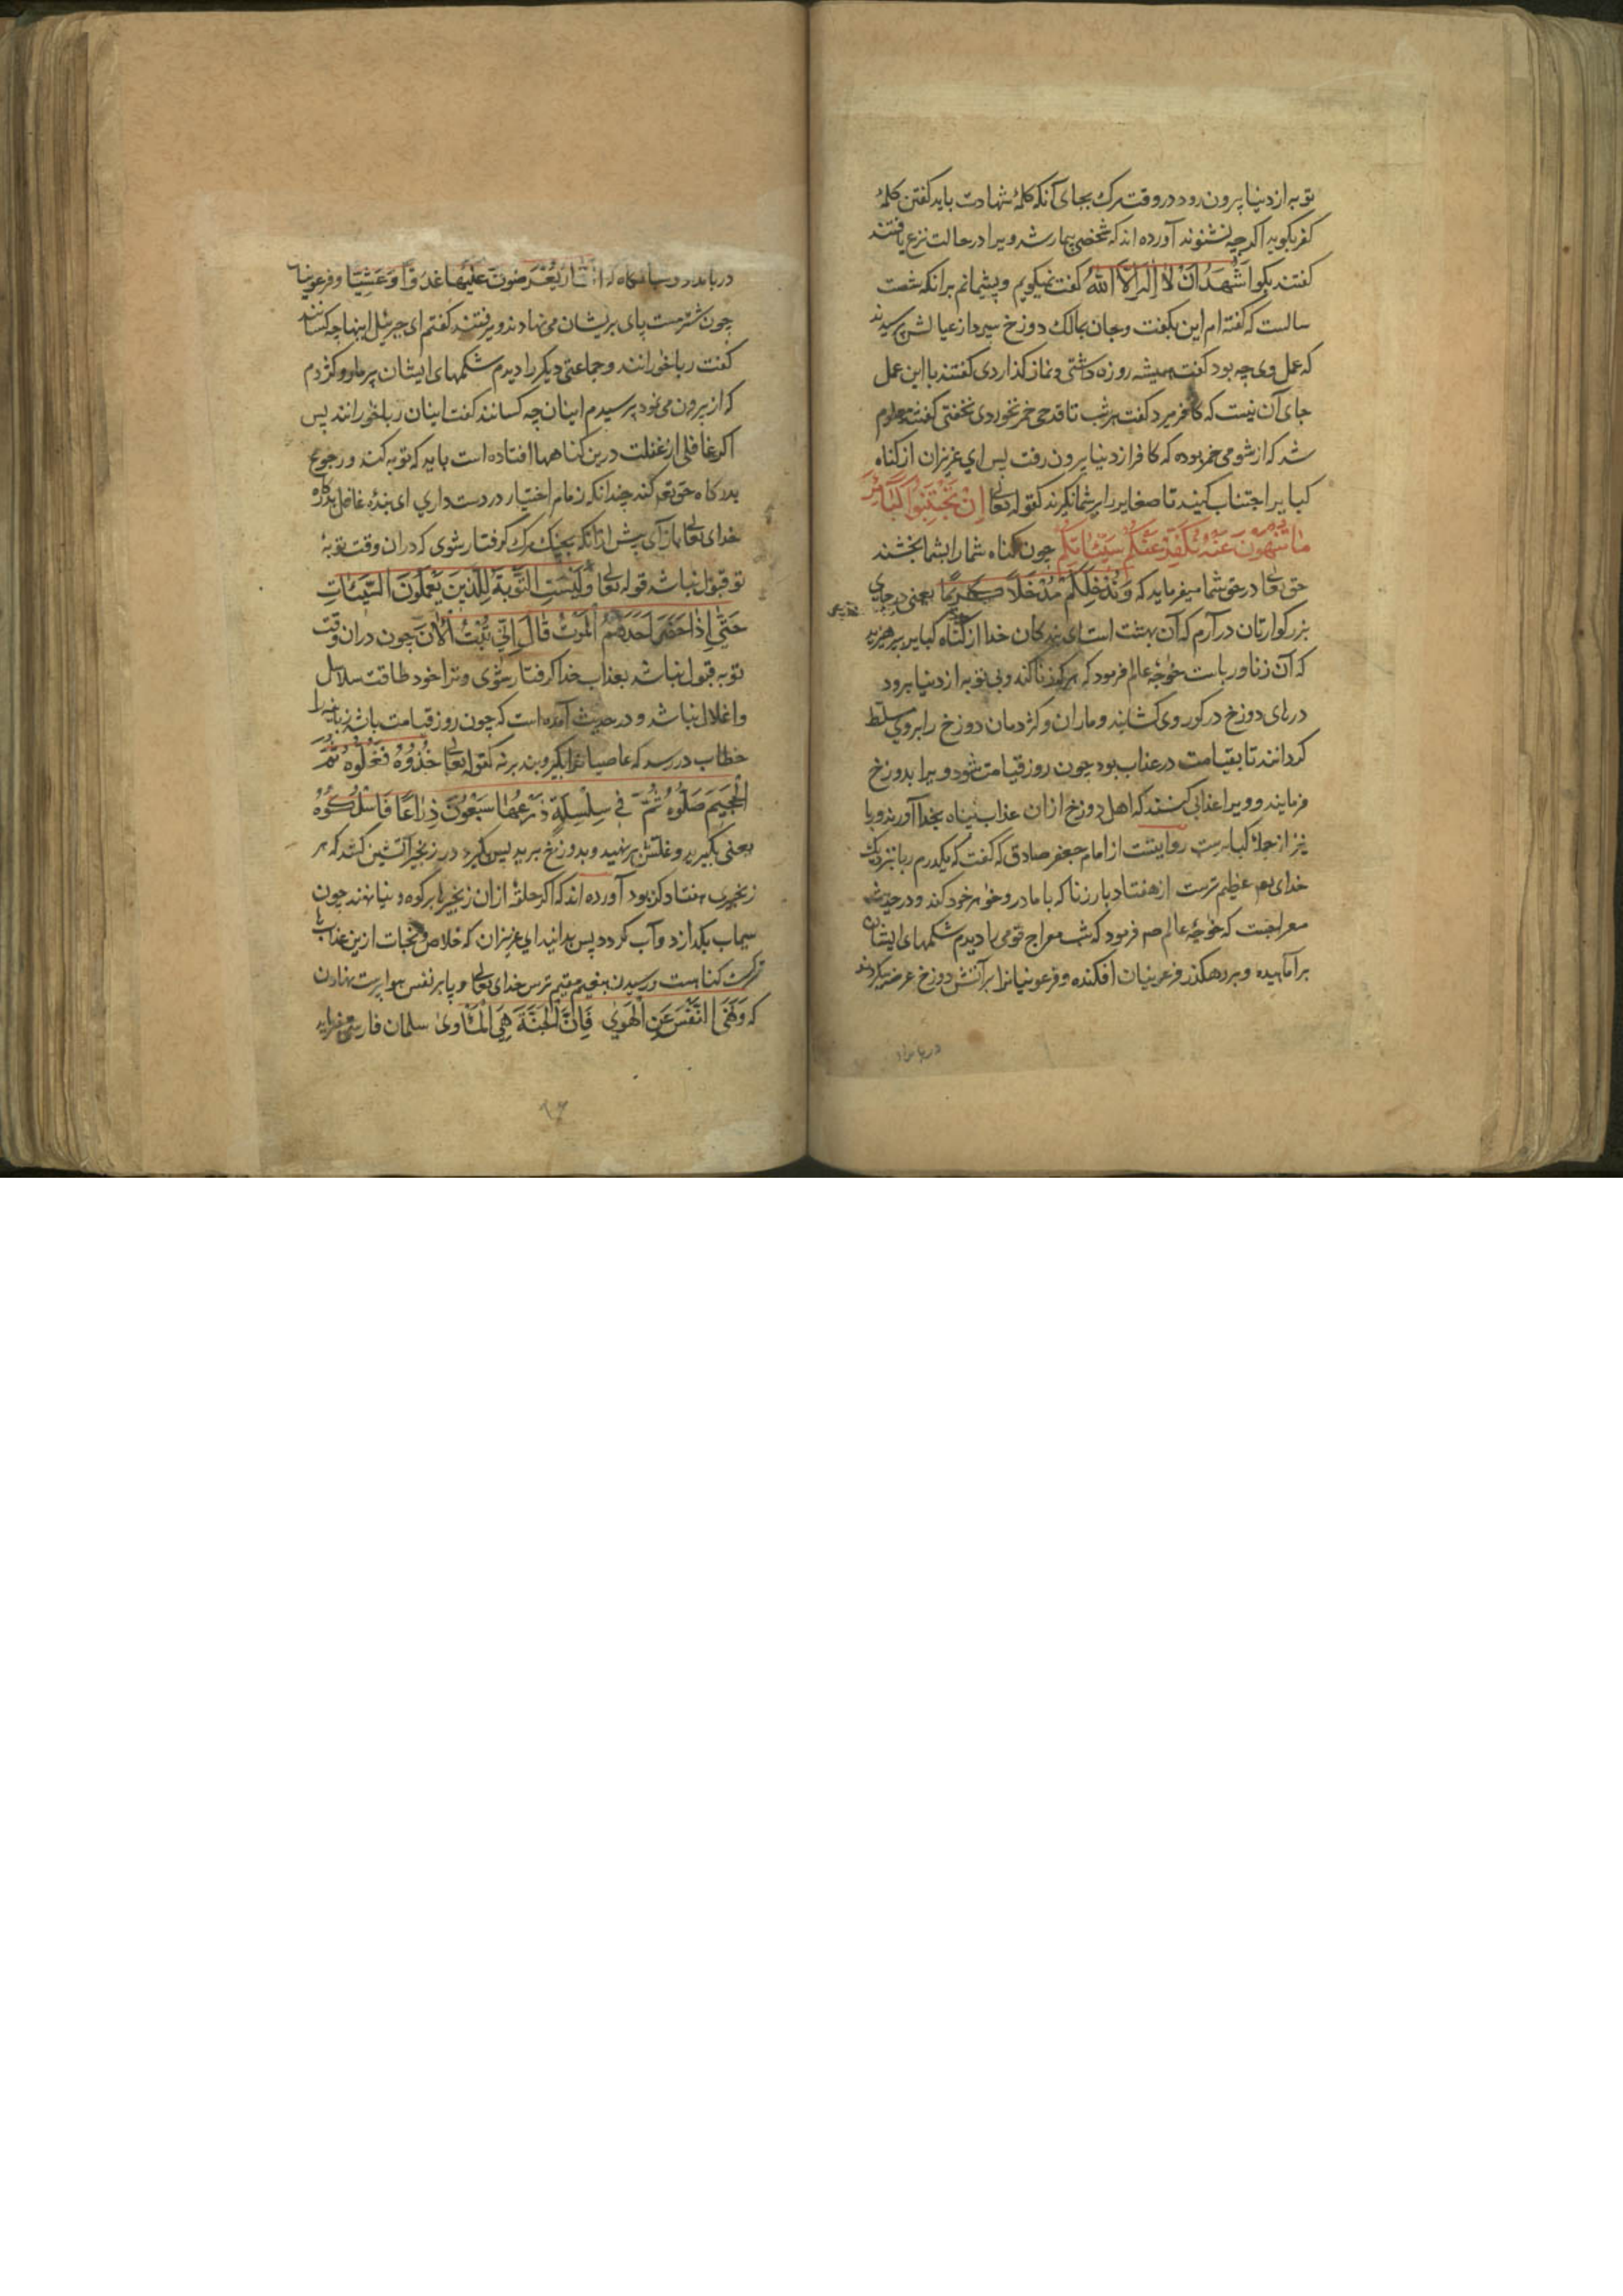 توبه از دنیا بیرون رود در وقت مرک بجای آنکه کلمهٔ شهادت باید کفتن کلمهٔ
کفر بکوید اکرچه نشنوند آورده اند که شخصی بیمار شد ویرا در حالت نزع یافتند
کفتند بکو اَشْهَدُ اَنْ لاٰ اِلٰهَ اِلاَّ اللهُ کفت نمیکویم و پشیمانم برانکه شصت
سالست که کفته ام این بکفت و جان بمالک دوزخ سپرد از عیالش پرسیدند
که عمل وی چه بود کفت همیشه روزه داشتی و نماز کذاردی کفتند با این عمل
جای آن نیست که کافر میرد کفت هر شب تا قدحی خمر نخوردی نخفتی کفتند معلوم
شد که از شومی خمر بوده که کافر از دنیا بیرون رفت پس ای عزیزان از کناه
کبایر اجتناب کنید تا صغایر را بر شما نکیرند کقوله تعالی اِنْ تَجْتَنِبُوا کَبٰائِرَ
مٰا تُنْهَوْنَ عَنْهُ نُکَفِّرْ عَنْکُمْ سَیِّئٰاتِکُمْ چون کناه شما را بشما بخشند
حق تعالی در حق شما میفرماید که وَنُدْخِلْکُمْ مُدْخَلاً کَرِیمًا یعنی در جای
بزرکوارتان درآرم که آن بهشت است ای بندکان خدا از کناه کبایر بپرهیزید
که آن زنا و رباست خوٰجهٔ عالم فرمود که هر که زنا کند و بی توبه از دنیا برود
درهای دوزخ در کور وی کشایند و ماران و کژدمان دوزخ را بروی مسلط
کردانند تا بقیامت در عذاب بود چون روز قیامت شود ویرا بدوزخ
فرمایند و ویرا عذابی کنند که اهل دوزخ ازان عذاب پناه بخدا آورند و ربا
نیز از جملهٔ کبایرست روایتست از امام جعفر صادق که کفت که یکدرم ربا بنزدیک
خدای تعالی عظیم ترست از هفتاد بار زنا که با مادر و خواهر خود کند و در حدیث
معراجست که خوٰجهٔ عالم صم فرمود که شب معراج قومی را دیدم شکمهای ایشان
برآماهیده و بر رهکذر فرعونیان افکنده و فرعونیانرا بر آتش دوزخ عرض میکردند
در بامداد
در بامداد و شبانکاه که اَلنّٰارُ یُعْرَضُونَ عَلَیْهٰا غُدُوًّا وَعَشِیًّا و فرعونیان
چون شتر مست پای بریشان می نهادند و میرفتند کفتم ای جبرئیل اینها چه کسانند
کفت رباخورانند و جماعتی دیکر را دیدم شکمهای ایشان پر مار و کژدم
که از بیرون می نمود پرسیدم اینان چه کسانند کفت اینان رباخورانند پس
اکر غافلی از غفلت درین کناهها افتاده است باید که توبه کند و رجوع
بدرکاه حق تعم کند چندانکه زمام اختیار در دست داری ای بندهٔ غافل بدرکاه
خدای تعالی بازآی پیش ازانکه بچنک مرک کرفتار شوی که دران وقت توبهٔ
تو قبول نباشد قوله تعالی وَلَیْسَتِ التَّوْبَةُ لِلَّذِینَ یَعْمَلُونَ السَّیِّئٰاتِ
حَتّٰی اِذٰا حَضَرَ اَحَدَهُمُ الْمَوْتُ قٰالَ اِنِّی تُبْتُ الْاٰنَ چون دران وقت
توبه قبول نباشد بعذاب خدا کرفتار شوی و ترا خود طاقت سلاسل
و اغلال نباشد و در حدیث آمده است که چون روز قیامت باشد زبانیه را
خطاب دررسد که عاصیانرا بکیر و بند برنه کقوله تعالی خُذُوهُ فَغُلُّوهُ ثُمَّ
الْجَحِیمَ صَلُّوهُ ثُمَّ فِی سِلْسِلَةٍ ذَرْعُهٰا سَبْعُونَ ذِرٰاعًا فَاسْلُکُوهُ
یعنی بکیرید و غلش برنهید و بدوزخ برید پس بکیرد در زنجیر آتشین کشد که هر
زنجیری هفتاد کز بود آورده اند که اکر حلقهٔ ازان زنجیرها بر کوه دنیا نهند چون
سیماب بکدازد و آب کردد پس بدانید ای عزیزان که خلاص و نجات ازین عذاب با
ترک کناهست و رسیدن بنعیم مقیم ترس خدای تعالی و پا بر نفس هواپرست نهادن
که وَنَهَی النَّفْسَ عَنِ الْهَوٰی فَاِنَّ الْجَنَّةَ هِیَ الْمَأْوٰی سلمان فارسی میفرماید